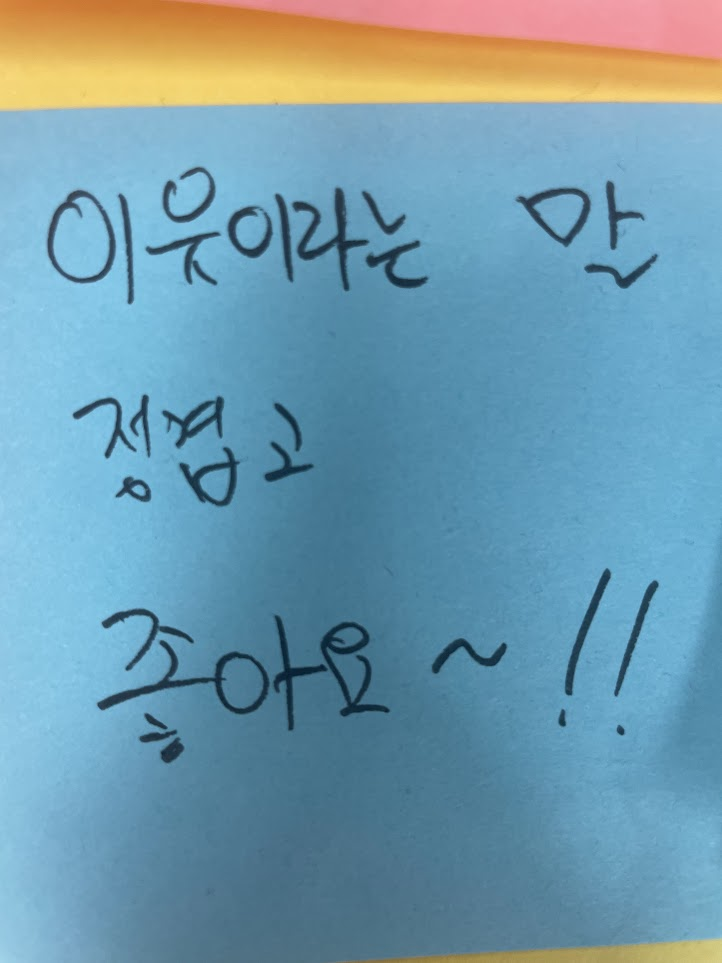 이웃이라는 말
정겹고
좋아요~!!